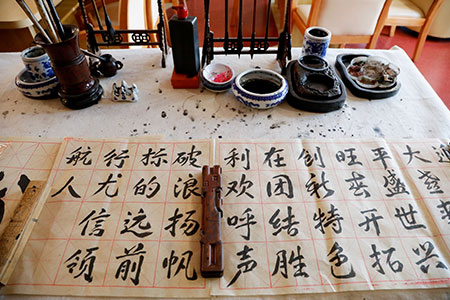 進
大盛
平盛世兴
旺春开拓
创新特色
在团结胜
利欢呼声
破浪扬帆
标的远前
行尤信领
航人